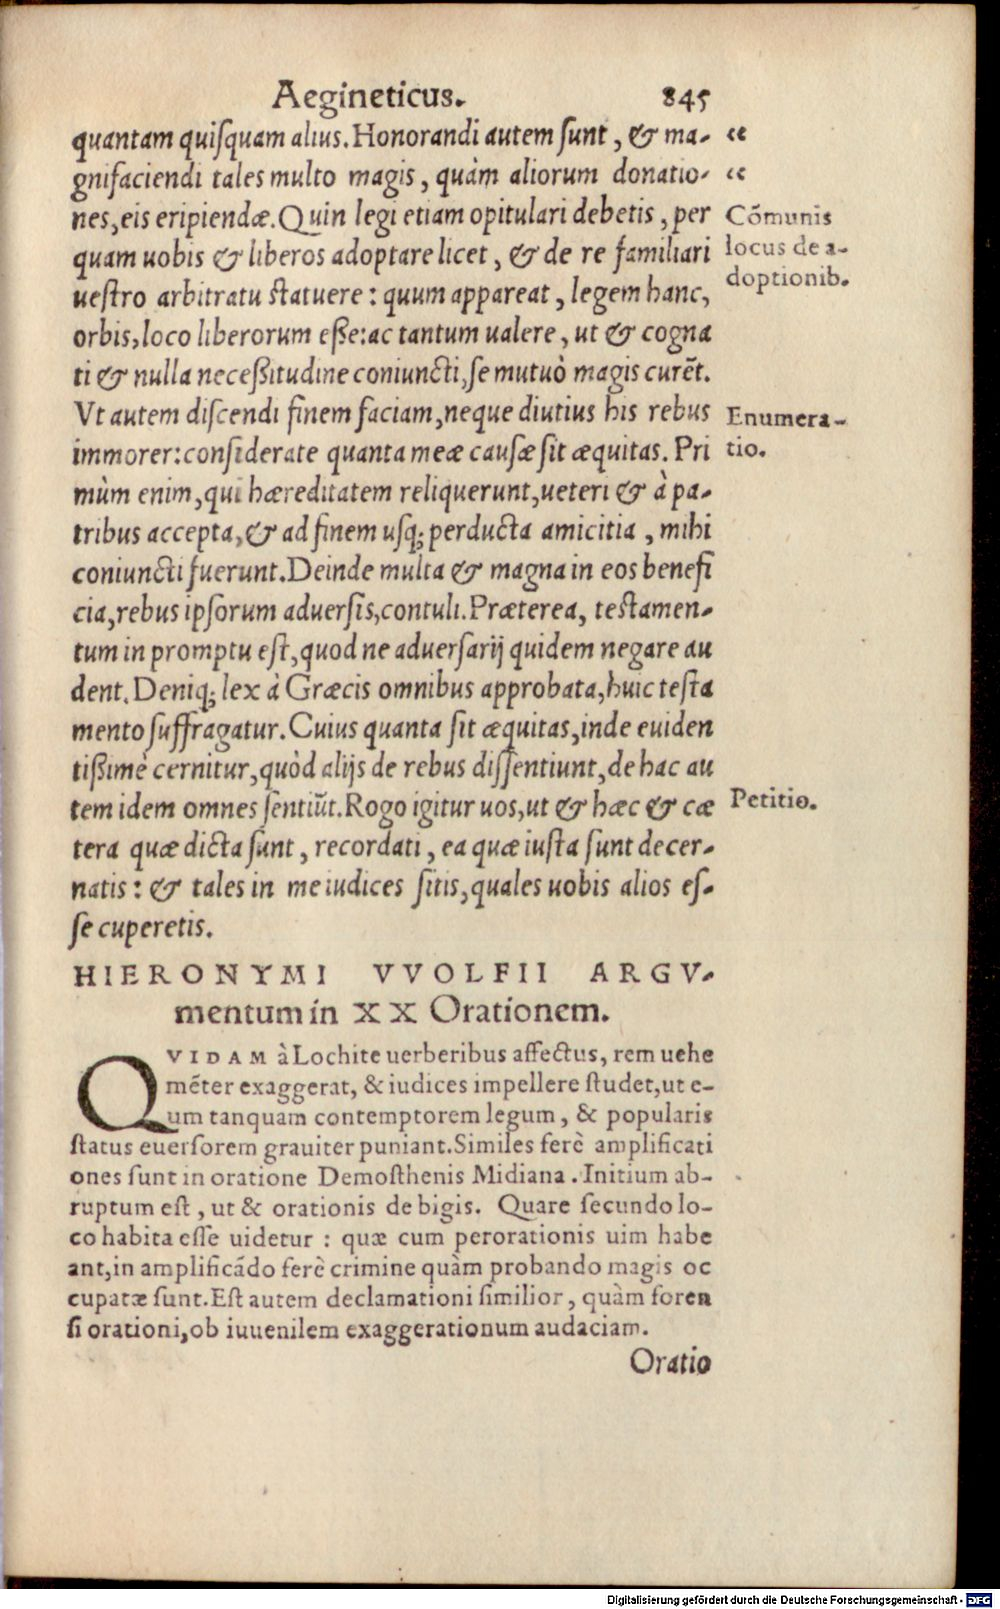 Aegineticus. 845
quantam quiſquam alius. Honorandi autem ſunt, & ma- "
gnifaciendi tales multo magis, quàm aliorum donatio- "
nes, eis eripiendæ. Quin legi etiam opitulari debetis, per
Cōmunis
quam uobis & liberos adoptare licet, & de re familiari
locus de a-
ueſtro arbitratu ſtatuere: quum appareat, legem hanc,
doptionib.
orbis, loco liberorum eſſe: ac tantum ualere, ut & cogna
ti & nulla neceſſitudine coniuncti, ſe mutuò magis curēt.
Vt autem diſcendi finem faciam, neque diutius his rebus
Enumera-
immorer: conſiderate quanta meæ cauſæ ſit æquitas. Pri
tio.
mùm enim, qui hæreditatem reliquerunt, ueteri & à pa-
tribus accepta, & ad finem uſq; perducta amicitia, mihi
coniuncti fuerunt. Deinde multa & magna in eos benefi
cia, rebus ipſorum aduerſis, contuli. Præterea, teſtamen-
tum in promptu eſt, quod ne aduerſarij quidem negare au
dent. Deniq; lex à Græcis omnibus approbata, huic teſta
mento ſuffragatur. Cuius quanta ſit æquitas, inde euiden
tiſſimè cernitur, quòd alijs de rebus diſſentiunt, de hac au
tem idem omnes ſentiūt. Rogo igitur uos, ut & hæc & cæ
Petitio.
tera quæ dicta ſunt, recordati, ea quæ iuſta ſunt decer-
natis: & tales in me iudices ſitis, quales uobis alios eſ-
ſe cuperetis.
HIERONYMI VVOLFII ARGV-
mentum in XX Orationem.
QVIDAM à Lochite uerberibus affectus, rem uehe
mēter exaggerat, & iudices impellere ſtudet, ut e-
um tanquam contemptorem legum, & popularis
ſtatus euerſorem grauiter puniant. Similes ferè amplificati
ones ſunt in oratione Demoſthenis Midiana. Initium ab-
ruptum eſt, ut & orationis de bigis. Quare ſecundo lo-
co habita eſſe uidetur: quæ cum perorationis uim habe
ant, in amplificādo ferè crimine quàm probando magis oc
cupatæ ſunt. Eſt autem declamationi ſimilior, quàm foren
ſi orationi, ob iuuenilem exaggerationum audaciam.
Oratio
Digitalisierung gefördert durch die Deutsche Forschungsgemeinschaft - DFG